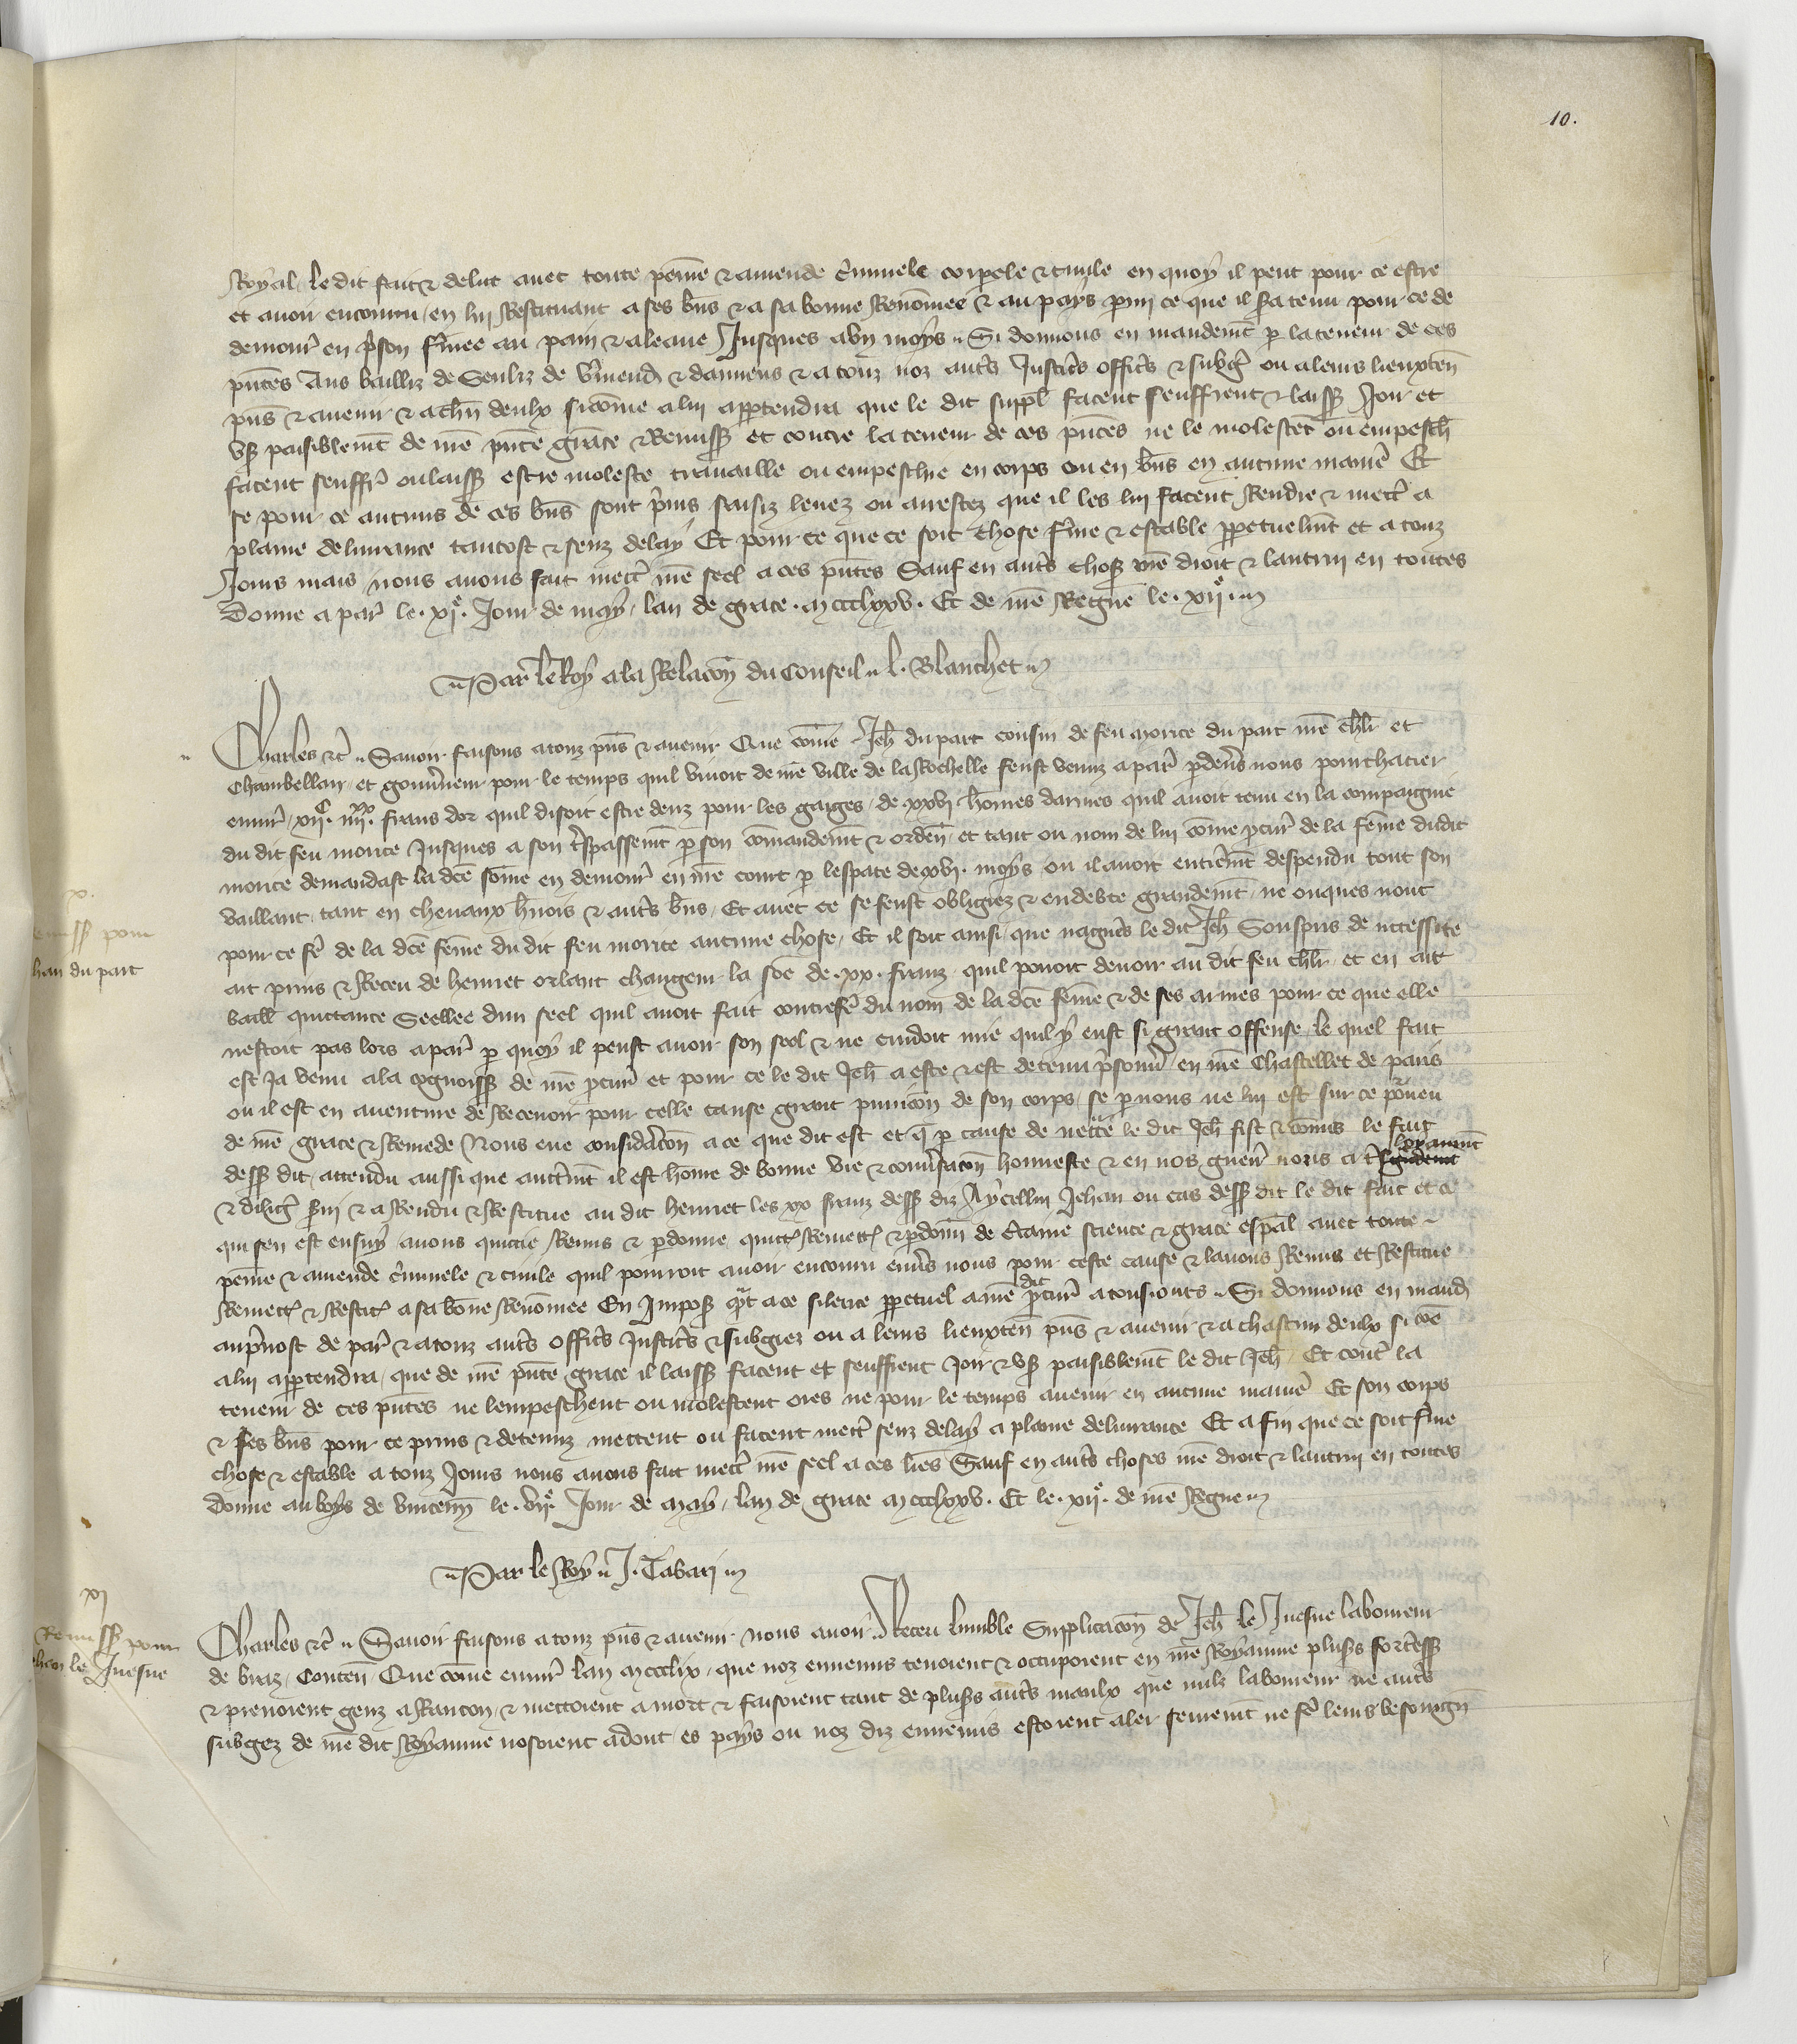 10.
Royal le dit fait & delit avec toute peine & amende c'iminele corporele & civile en quoy il peut pour ce estre
et avoir encouru en lui Restituant a ses bn̄s & a sa bonne Renōmee & au pays parmi ce que il sera tenu pour ce de
demour' en p'son fermee au pain & a leaue Jusques a vn moys Si donnons en mandemt par la teneur de ces
pn̄tes Aus bailliz de Senliz de v'mend & damiens & a touz noz aut's Justic's offic's & subg' ou a leurs lieuxten̄
pn̄s & avenir & a chn̄ deulx sicōme a lui appartendra que le dit suppl' facent seuffrent & laiss' Joir et
vs' paisiblemt de nr̄e pn̄te grace & Remiss' et contre la teneur de ces pn̄tes ne le molestēt ou empesch̄
facent seuffr' ou laiss' estre moleste travaille ou empeschie en corps ou en bn̄s en aucune manie' Et
se pour ce aucuns de ces bn̄s sont p'ins saisiz levez ou arrestez que il les lui facent Rendre & mect' a
plaine delivrance tantost & senz delay Et pour ce que ce soit chose f'me & estable ppetuelmt et a touz
Jours mais nous avons fait mect' nr̄e seel a ces pn̄tes Sauf en aut's chos' nr̄e droit & lautrui en toutes
Donne a par' le .xie. Jour de may lan de grace .mccclxxv. Et de nr̄e Regne le .xiie.
Par le Roy a la Relacōn du Conseil l. Blanchet
Charles &c' Savoir faisons a touz pn̄s & avenir Que cōme Jeh' du parc cousin de feu morice du parc nr̄e ch̄lr et
Chambellan et gouv'neur pour le temps quil vivoit de nr̄e ville de la Rochelle feust venuz a par' p devers nous pourchacier
envir' xiic. iiiixx. frans dor quil disoit estre deuz pour les gaiges de xxvi hōmes darmes quil avoit tenu en la compaignie
du dit feu morice Jusques a son t'spassemt par son cōmandemt & orden̄ et tant ou nom de lui cōme pcur' de la fēme dudit
morice demandast la dc̄e sōme en demour' en nr̄e court par lespace de xvi. moys ou il avoit entierem̄t despendu tout son
vaillant tant en chevaux h'nois & aut's bn̄s Et avec ce se feust obligiez & endebte grandemt ne onques nout
pour ce fe' de la dc̄e fēme du dit feu morice aucune chose Et il soit ainsi que nagu's le dit Jeh' Souspris de necessite
ait prins & Receu de henriet orlant changeur la sōe de .xx. franz quil povoit devoir au dit feu ch̄lr et en ait
baill' quittance Seellee dun seel quil avoit fait contrefe' du nom de la dc̄e fēme & de ses armes pour ce que elle
nestoit pas lors a par' par quoy il peust avoir son seel & ne cuidoit mie quil y eust si grant offense le quel fait
est Ja venu a la cognoiss' de nr̄e pcur' et pour ce le dit Jeh' a este & est detenu p'sonn' en nr̄e Chastellet de paris
ou il est en aventure de Recevoir pour celle cause grant punicōn de son corps se par nous ne lui est sur ce p'veu
de nr̄e grace & Remede Nous eue considāciōn a ce que dit est et q̄ par cause de nec'ite le dit Jeh' fist & cōmis le fait
dess' dit attendu aussi que aut'mt il est hōme de bonne vie & conv'sacōn honneste & en nos guerr' nous a loyaumt
& dilig' servi & a Rendu & Restitue au dit henriet les xx franz dess' diz Aycellui Jehan ou cas dess' dit le dit fait et ce
qui sen est ensuy avons quictie Remis & pardonne quict' Remect' & pdonn' de c'taine science & grace esp̄al avec toute
peine & amende c'iminele & civile quil pourroit avoir encouru env's nous pour ceste cause & lavons Remis et Restitue
Remect' & Restit' a sa bōne Renōmee En Impos' q̄nt a ce silence ppetuel a nr̄e dit pcur' a tousiours Si donnons en mand
au p'vost de par' & a touz aut's offic's Justic's & subgiez ou a leurs lieuxten̄ pn̄s & avenir & a chascun deulx si cōe
a lui appartendra que de nr̄e pn̄te grace il laiss' facent et seuffrent Joir & vs' paisiblemt le dit Jeh' Et cont' la
teneur de ces pn̄tes ne lempeschent ou molestent ores ne pour le temps avenir en aucune manie' Et son corps
& ses bn̄s pour ce prins & detenuz mettent ou facent mect' senz delay a plaine delivrance Et a fin que ce soit f'me
chose & estable a touz Jours nous avons fait mect' nr̄e seel a ces lr̄es Sauf en aut's choses nr̄e droit & lautrui en toutes
Donne au boys de vincenn' le .viie. Jour de may lan de grace mccclxxv. Et le .xiie. de nr̄e Regne
Par le Roy J. Tabari
Charles &c' Savoir faisons a touz pn̄s & avenir nous avoir Receu lumble Supplicacōn de Jeh' le Juesne laboureur
de braz Conten̄ Que cōme envir' lan mccclix que noz ennemis tenoient & occupoient en nr̄e Royaume plus's fort'ess'
& prenoient genz a Rancon & mettoient a mort & faisoient tant de plus's aut's maulx que nulz laboureur ne aut's
subgez de nr̄e dit Royaume nosoient adonc es pays ou noz diz ennemis estoient aler seurem̄t ne fe' leurs besoingn̄
x.
emiss' pour
han du parc
xi
Remiss' pour
ehan le Juesne